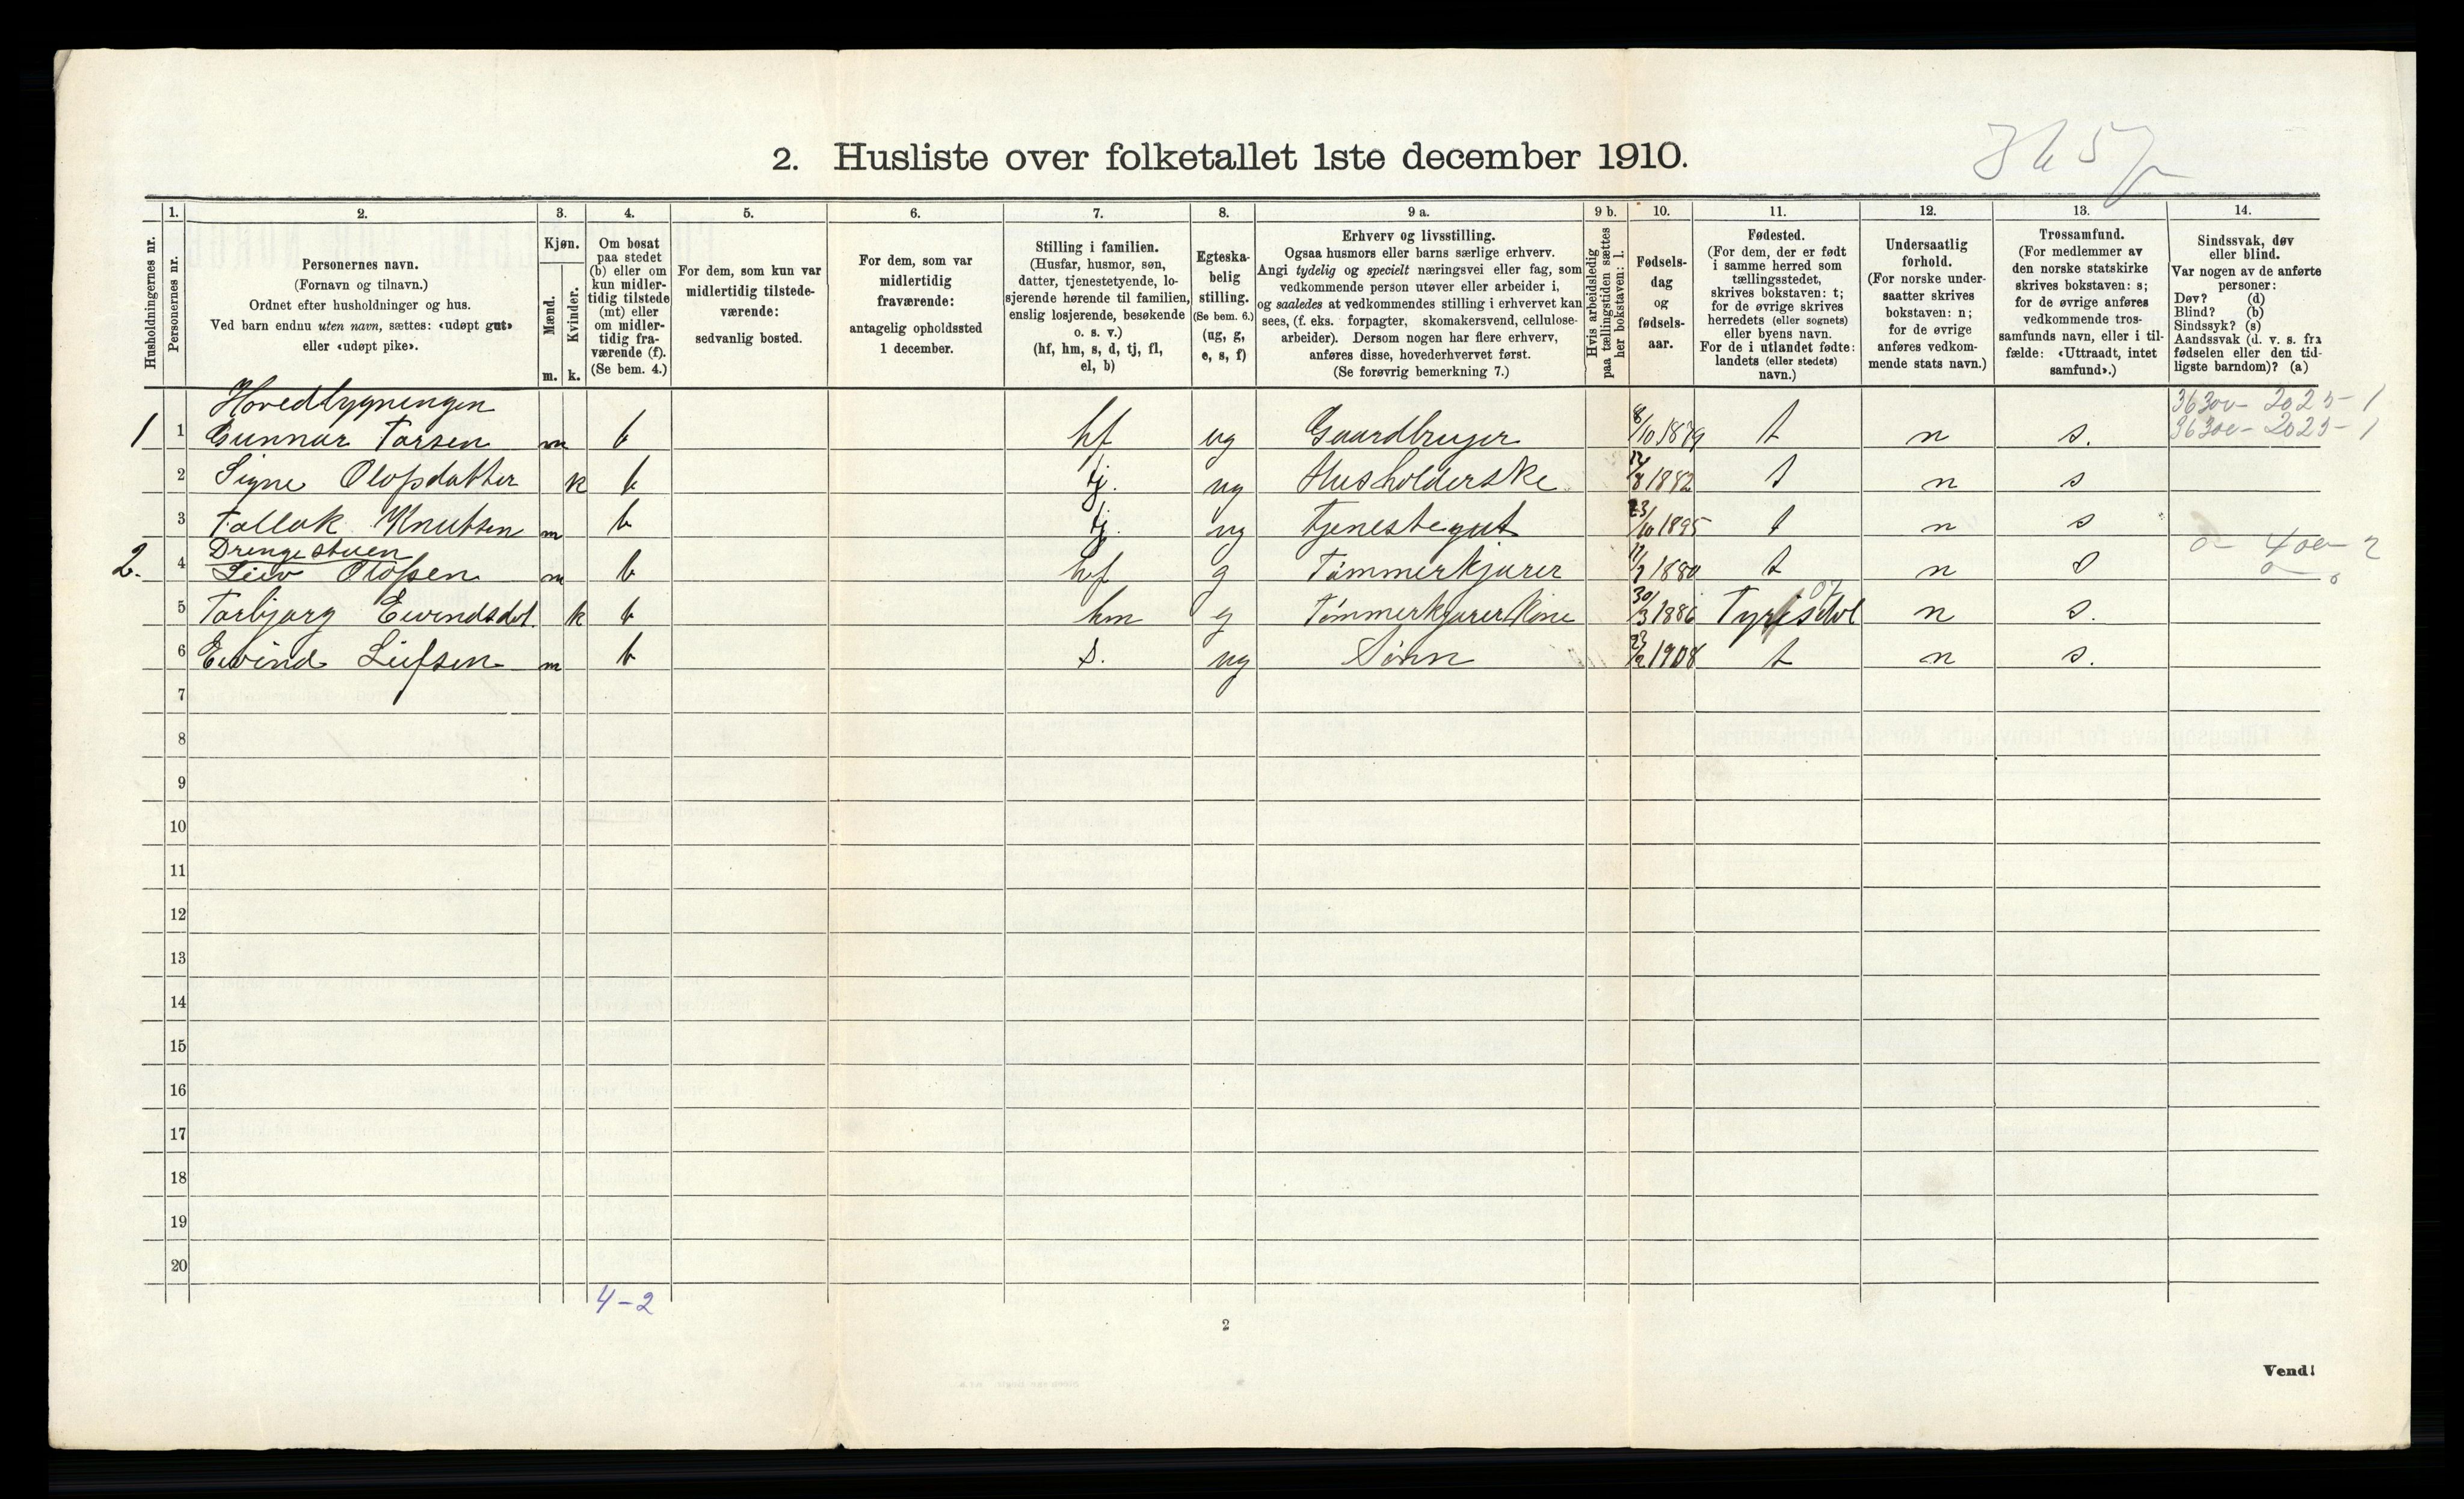 2. Husliste over folketallet 1ste december 1910.
Husholdningernes nr.
1.
Personernes nr.
2.
Personernes navn.
(Fornavn og tilnavn.)
Ordnet efter husholdninger og hus.
Ved barn endnu uten navn, sættes: «udøpt gut»
eller «udøpt pike».
3.
Kjøn.
Mænd.
Kvinder.
m. k.
4.
Om bosat
paa stedet
(b) eller om
kun midler-
tidig tilstede
(mt) eller
om midler-
tidig fra-
værende (f).
(Se bem. 4.)
5.
For dem, som kun var
midlertidig tilstede-
værende:
sedvanlig bosted.
6.
For dem, som var
midlertidig
fraværende:
antagelig opholdssted
1 december.
7.
Stilling i familien.
(Husfar, husmor, søn,
datter, tjenestetyende, lo-
sjerende hørende til familien,
enslig losjerende, besøkende
o. s. v.)
(hf, hm, s, d, tj, fl,
el, b)
8.
Egteska-
belig
stilling.
(Se bem. 6.)
(ug, g,
e, s, f)
9 a.
Erhverv og livsstilling.
Ogsaa husmors eller barns særlige erhverv.
Angi tydelig og specielt næringsvei eller fag, som
vedkommende person utøver eller arbeider i,
og saaledes at vedkommendes stilling i erhvervet kan
sees, (f. eks. forpagter, skomakersvend, cellulose-
arbeider). Dersom nogen har flere erhverv,
anføres disse, hovederhvervet først.
(Se forøvrig bemerkning 7.)
9 b.
Hvis arbeidsledig
paa tællingstiden sættes
her bokstaven: l.
10.
Fødsels-
dag
og
fødsels-
aar.
11.
Fødested.
(For dem, der er født
i samme herred som
tællingsstedet,
skrives bokstaven: t;
for de øvrige skrives
herredets (eller sognets)
eller byens navn.
For de i utlandet fødte:
landets (eller stedets)
navn.)
12.
Undersaatlig
forhold.
(For norske under-
saatter skrives
bokstaven: n;
for de øvrige
anføres vedkom-
mende stats navn.)
13.
Trossamfund.
(For medlemmer av
den norske statskirke
skrives bokstaven: s;
for de øvrige anføres
vedkommende tros-
samfunds navn, eller i til-
fælde: «Uttraadt, intet
samfund».)
14.
Sindssvak, døv
eller blind.
Var nogen av de anførte
personer:
Døv? (d)
Blind? (b)
Sindssyk? (s)
Aandssvak (d. v. s. fra
fødselen eller den tid-
ligste barndom)? (a)
Hovedbygningen
1 1 Gunnar Tarsen m b hf ug Gaardbruger 8/10 1879 t n s.
2 Signe Olofsdatter k b tj. ug Husholderske 12/8 1882 t n s
3 Tallak Knutsen m b tj. ug Tjenestegut 23/10 1895 t n s
Drengestuen
2. 4 Leiv Olofsen m b hf g Tømmerkjører 1880 t n s
5 Torbjørg Eivindsdat. k b hm g Tømmerkjørerskone 30/3 1886 n s.
6 Eivind Leifsen m b s. ug Sønn 1908 t n s.
7
8
9
10
11
12
13
14
15
16
17
18
19
20
4-2
2
Vend!